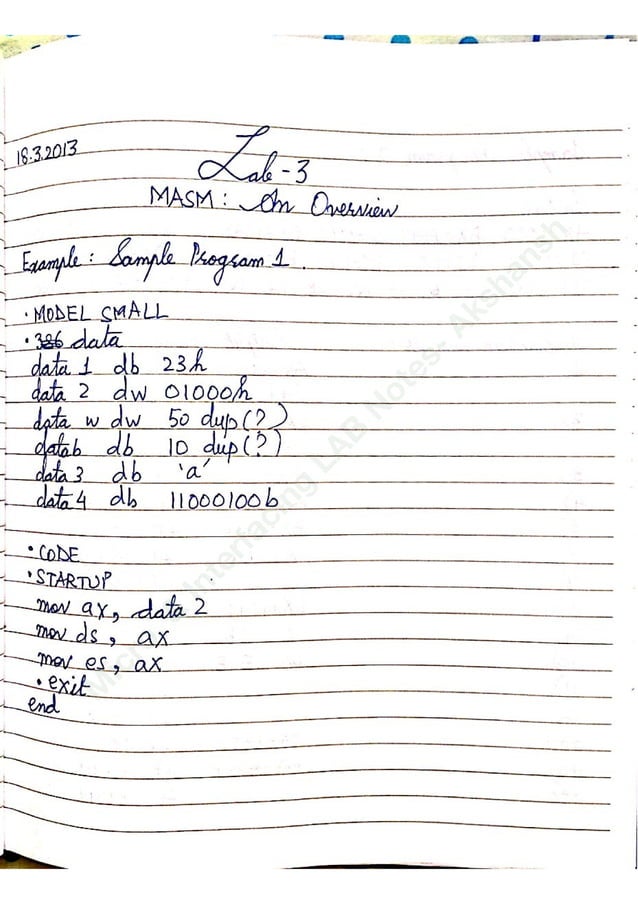 18.3.2013
Lab-3
MASM: An Overview
Example: Sample Program 1.
.MODEL SMALL
.386 data
data 1 db 23h
data 2 dw 01000h
data w dw 50 dup(?)
datab db 10 dup(?)
data3 db 'a'
data4 db 11000100b
.CODE
.STARTUP
mov ax, data 2
mov ds, ax
mov es, ax
.exit
end
Interfacing LAB Notes- Akshansh